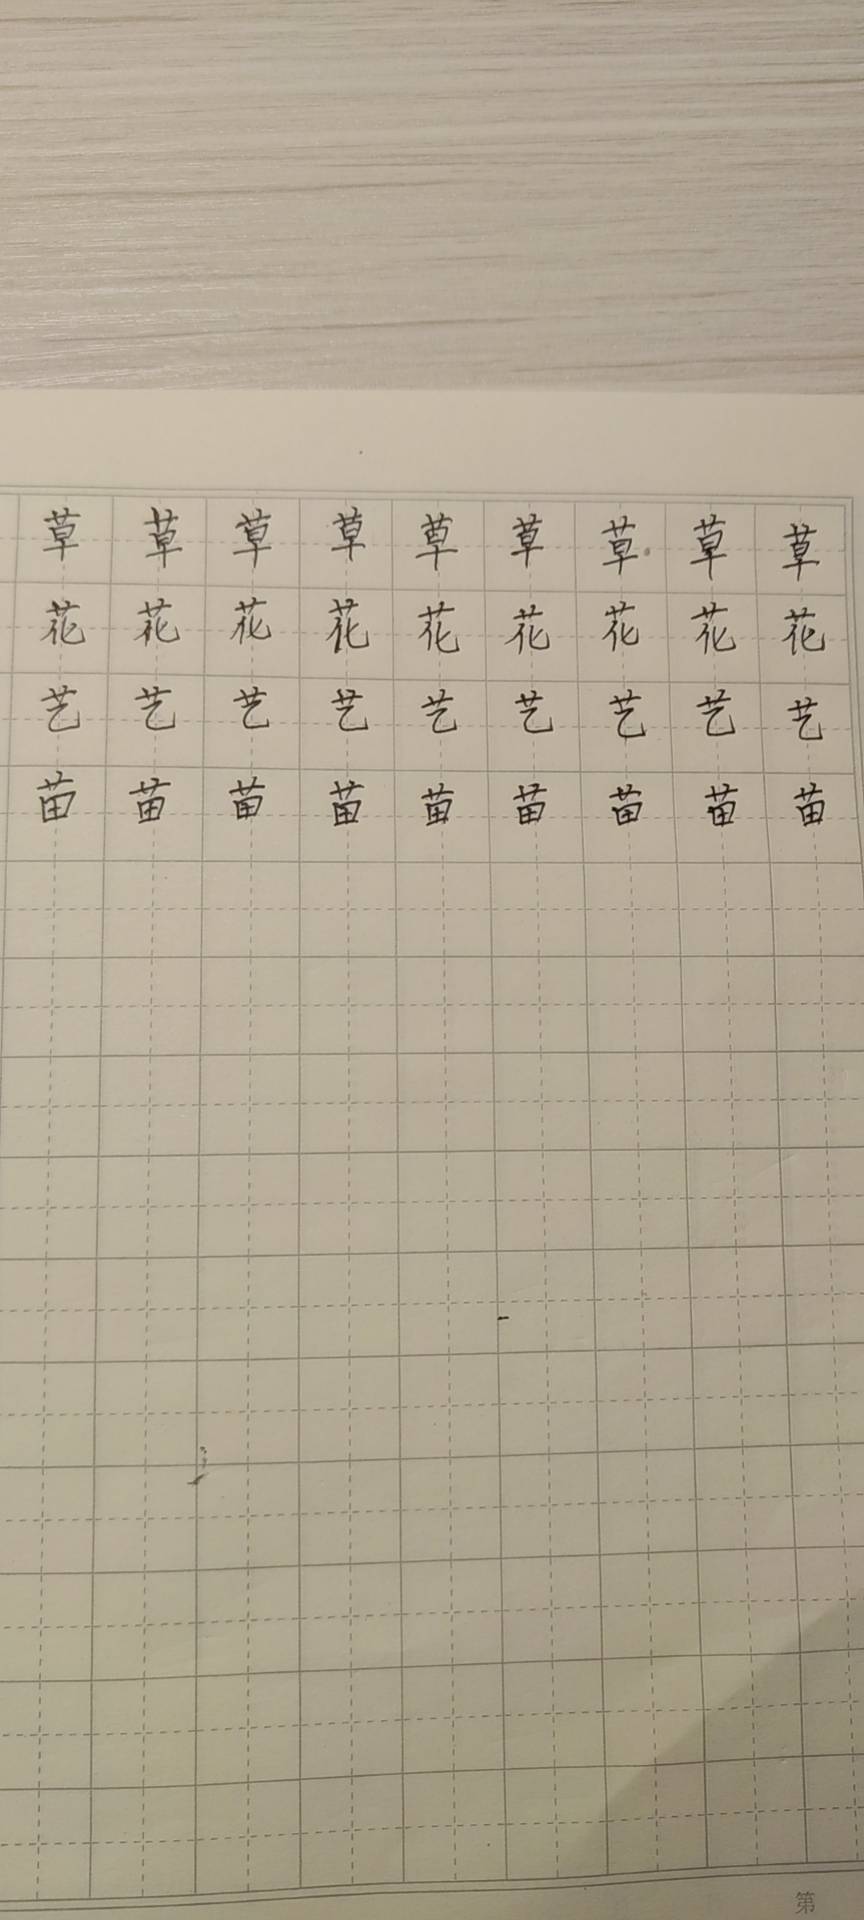 草草草草草草草草草
花花花花花花花花花
艺艺艺艺艺艺艺艺艺
苗苗苗苗苗苗苗苗苗
第